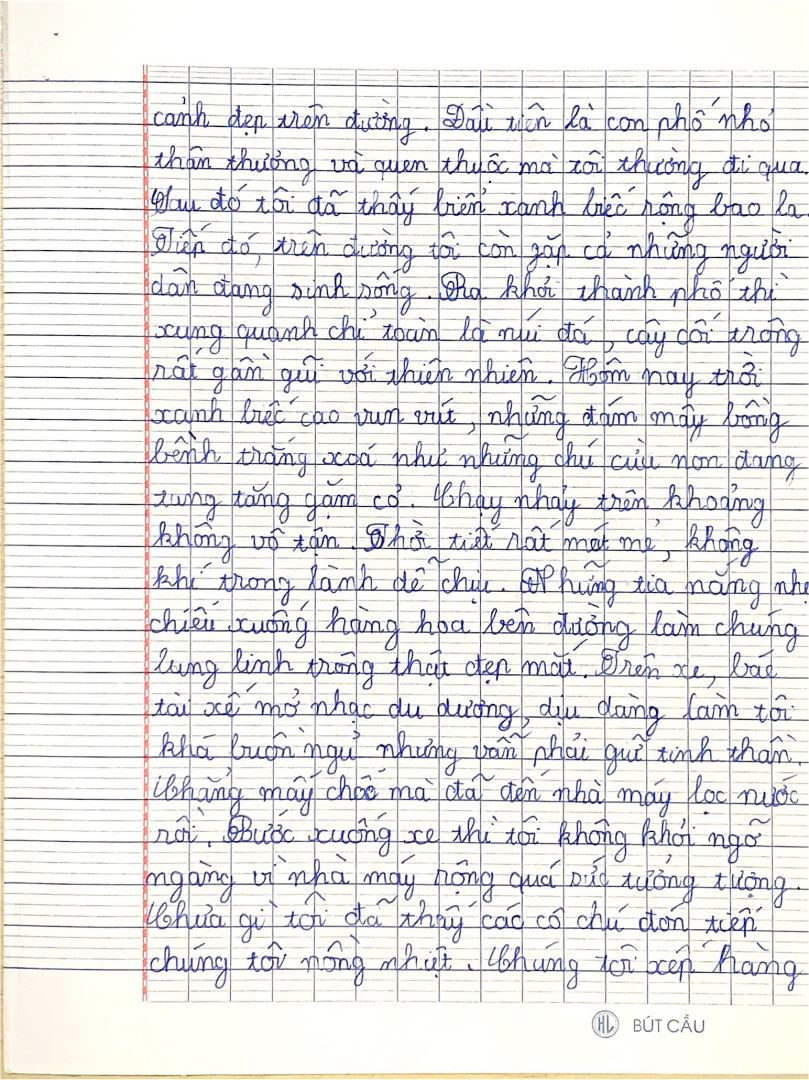 cảnh đẹp trên đường. Đầu tiên là con phố nhỏ
thân thương và quen thuộc mà tôi thường đi qua.
Sau đó tôi đã thấy biển xanh biếc rộng bao la
Tiếp đó, trên đường tôi còn gặp cả những người
dân đang sinh sống. Ra khỏi thành phố thì
xung quanh chỉ toàn là núi đá, cây cối trông
rất gần gũi với thiên nhiên. Hôm nay trời
xanh biếc cao vun vút, những đám mây bồng
bềnh trắng xoá như những chú cừu non đang
tung tăng gặm cỏ. Chạy nhảy trên khoảng
không vô tận. Thời tiết rất mát mẻ, không
khí trong lành dễ chịu. Những tia nắng nhẹ
chiếu xuống hàng hoa bên đường làm chúng
lung linh trông thật đẹp mắt. Trên xe, bác
tài xế mở nhạc du dương, dịu dàng làm tôi
khá buồn ngủ nhưng vẫn phải giữ tinh thần.
Chẳng mấy chốc mà đã đến nhà máy lọc nước
rồi. Bước xuống xe thì tôi không khỏi ngỡ
ngàng vì nhà máy rộng quá sức tưởng tượng.
Chưa gì tôi đã thấy các cô chú đón tiếp
chúng tôi nồng nhiệt. Chúng tôi xếp hàng
HL BÚT CẦU